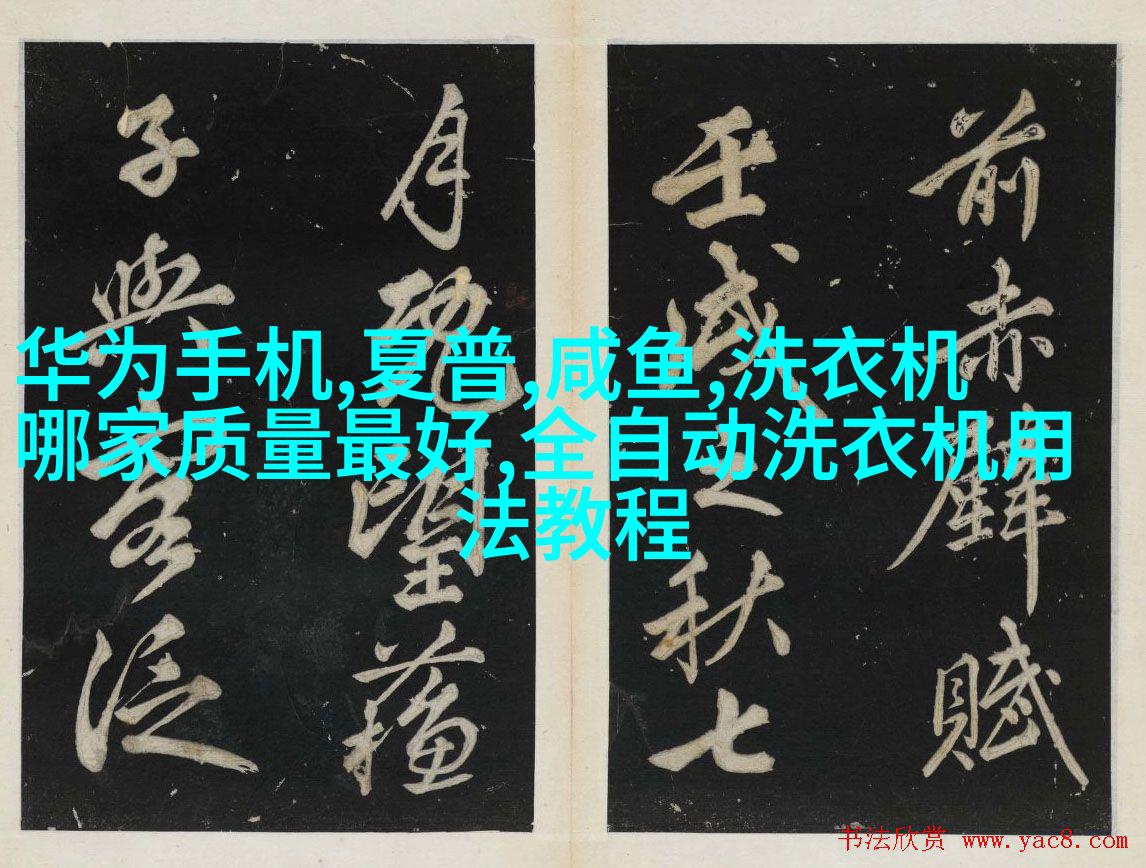 前赤壁賦
壬戌之秋七
月既望蘓
子與客泛
华为手机,夏普,咸鱼,洗衣机
哪家质量最好,全自动洗衣机用
法教程
书法欣赏 www.yac8.com